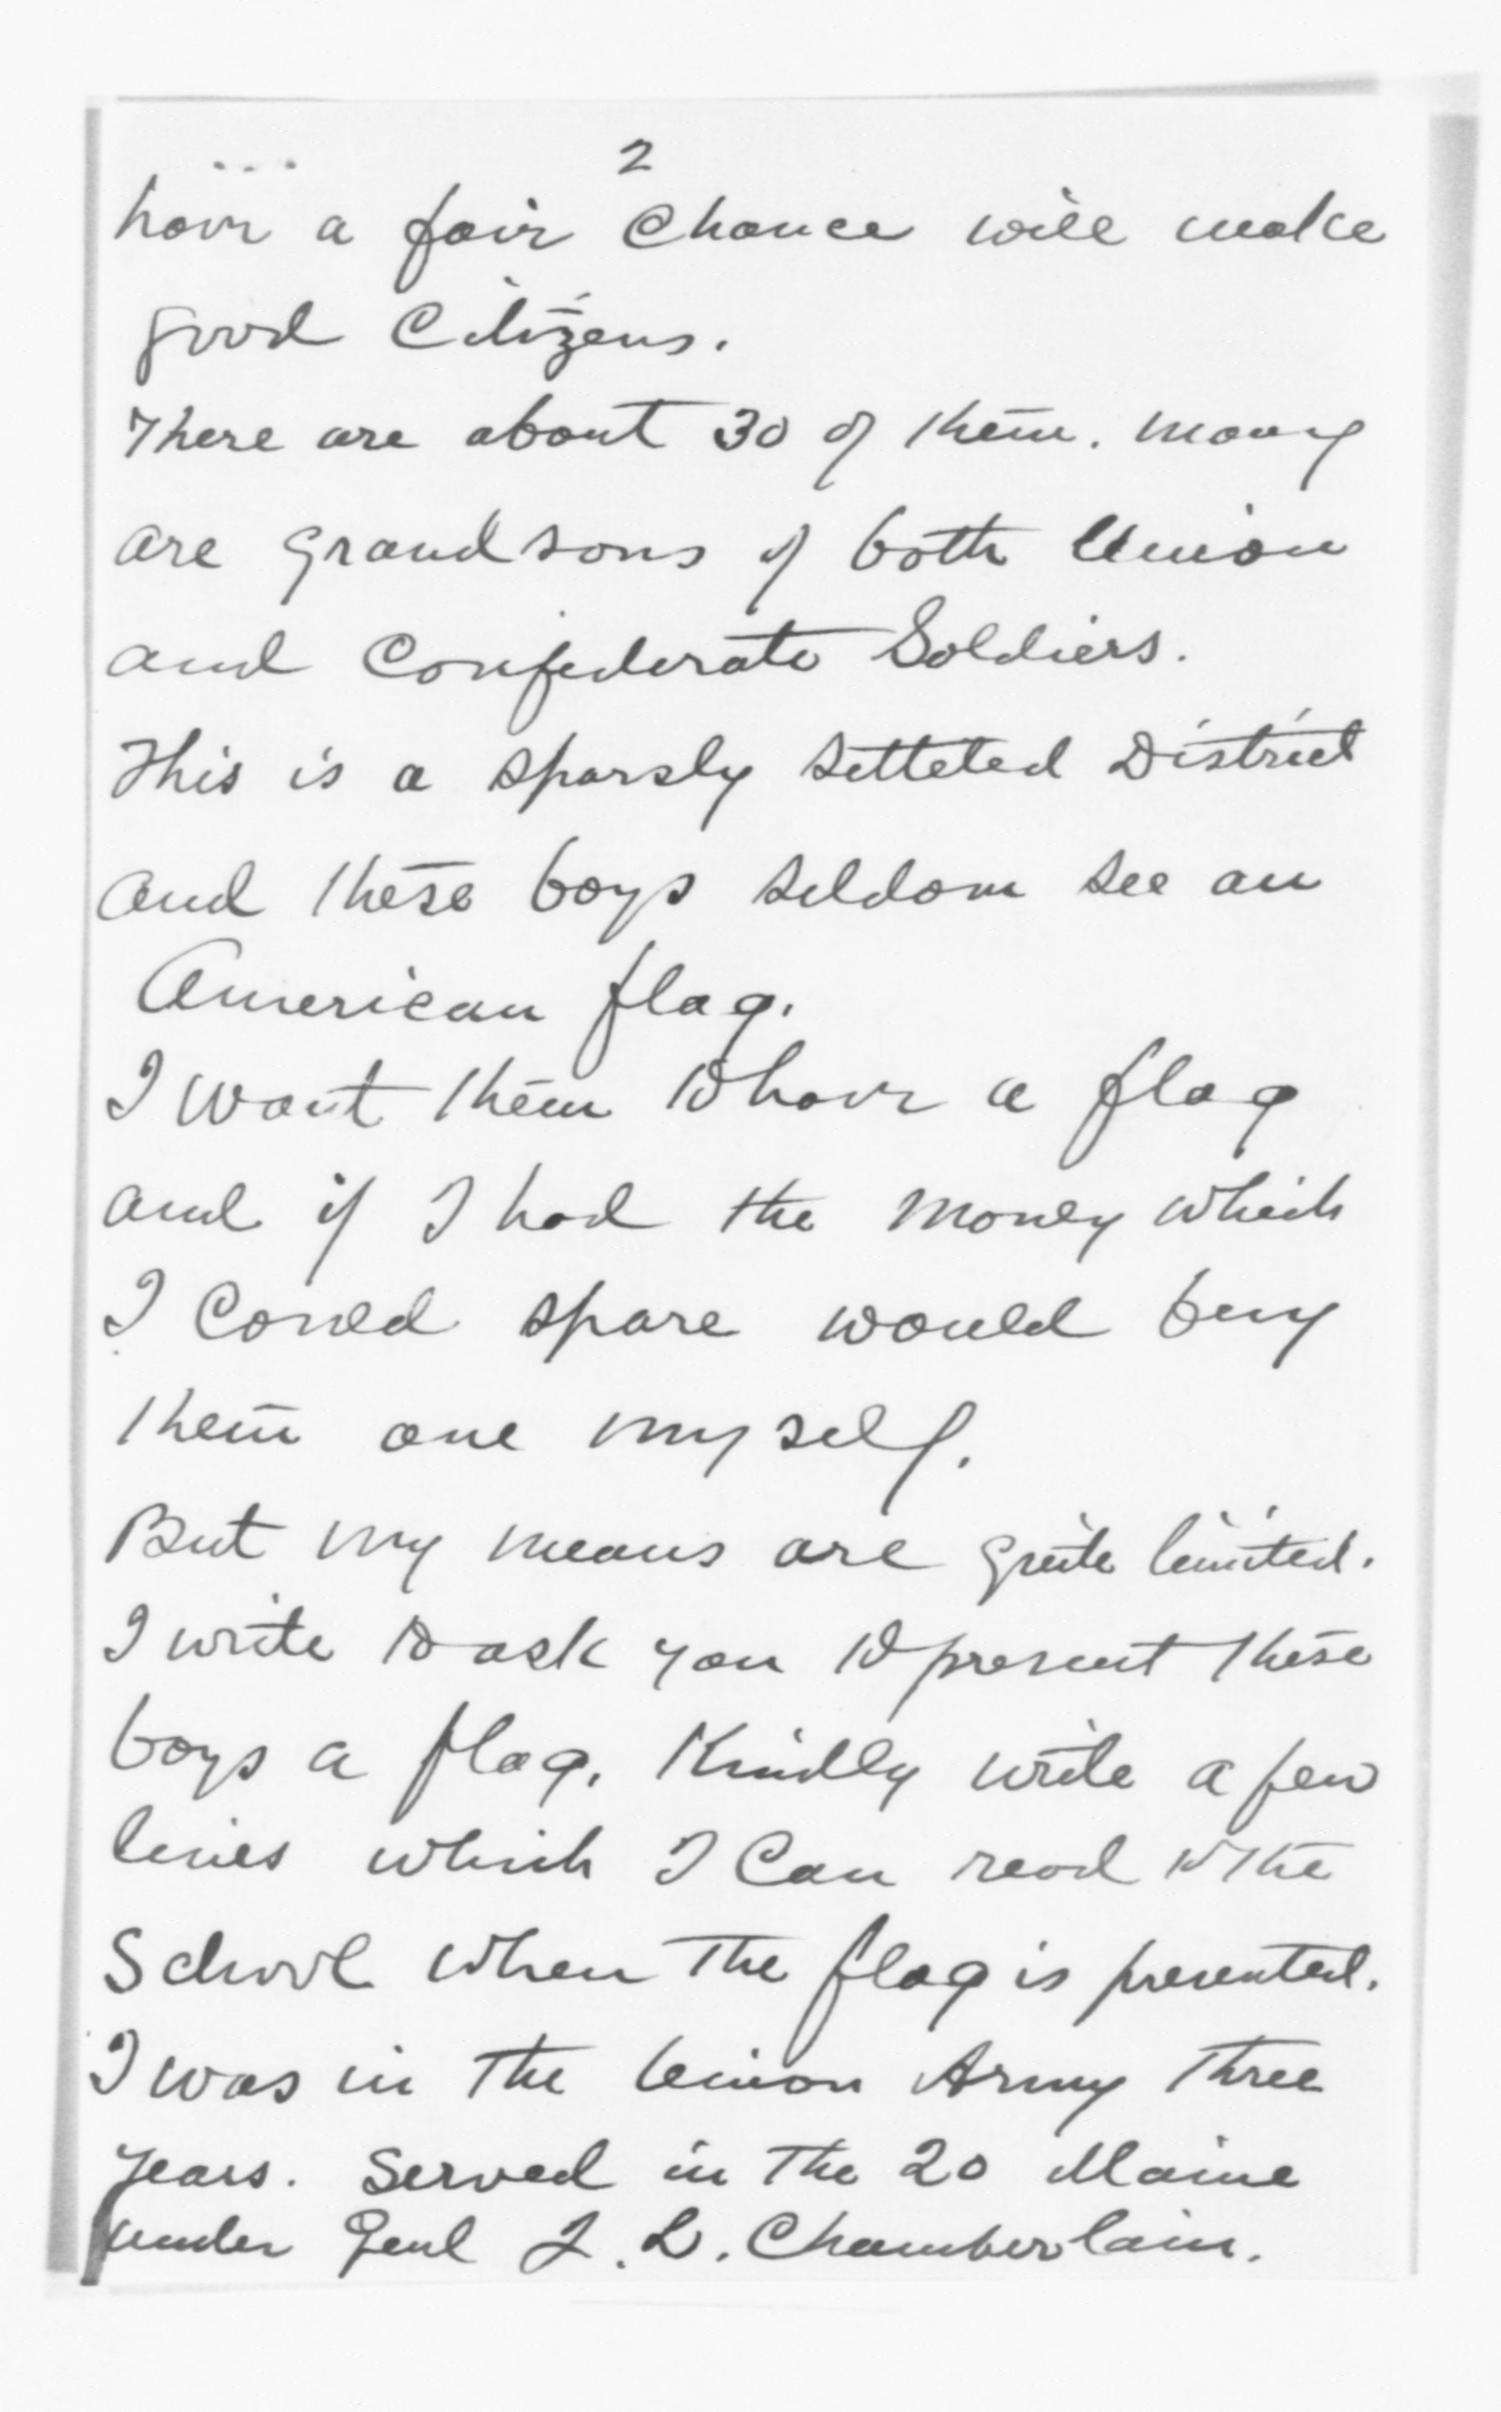 2
have a fair chance will make
good Citizens.
There are about 30 of them. many
are grandsons of both Union
and Confederate Soldiers.
This is a sparsly setteled District
and these boys seldom see an
American flag.
I want them to have a flag
and if I had the money which
I Could spare would buy
them one myself.
But my means are quite limited.
I write to ask you to present these
boys a flag. Kindly write a few
lines which I Can read to the
School when the flag is presented.
I was in the Union Army three
years. Served in the 20 Maine
under Genl J. L. Chamberlain.